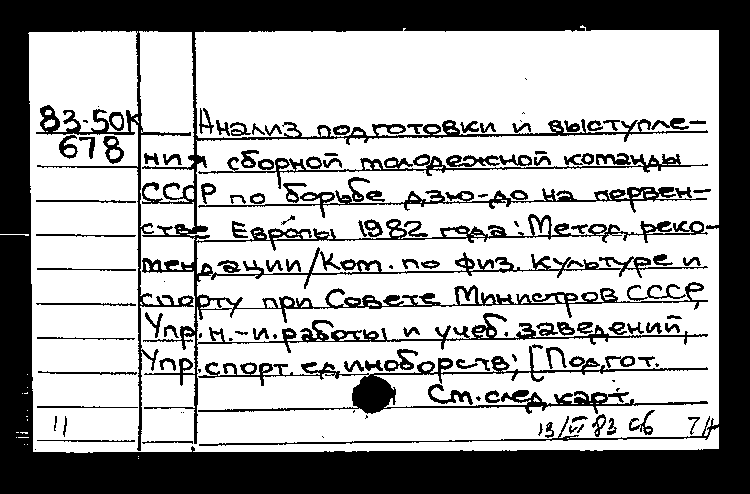 83-50К Анализ подготовки и выступле-
678 ния сборной молодежной команды
СССР по борьбе дзю-до на первен-
стве Европы 1982 года: Метод. реко-
мендации/Ком. по физ. культуре и
спорту при Совете Министров СССР,
Упр. н.-и. работы и учеб. заведений,
Упр. спорт. единоборств; [Подгот.
См. след. карт.
11 13/VI 83 сб